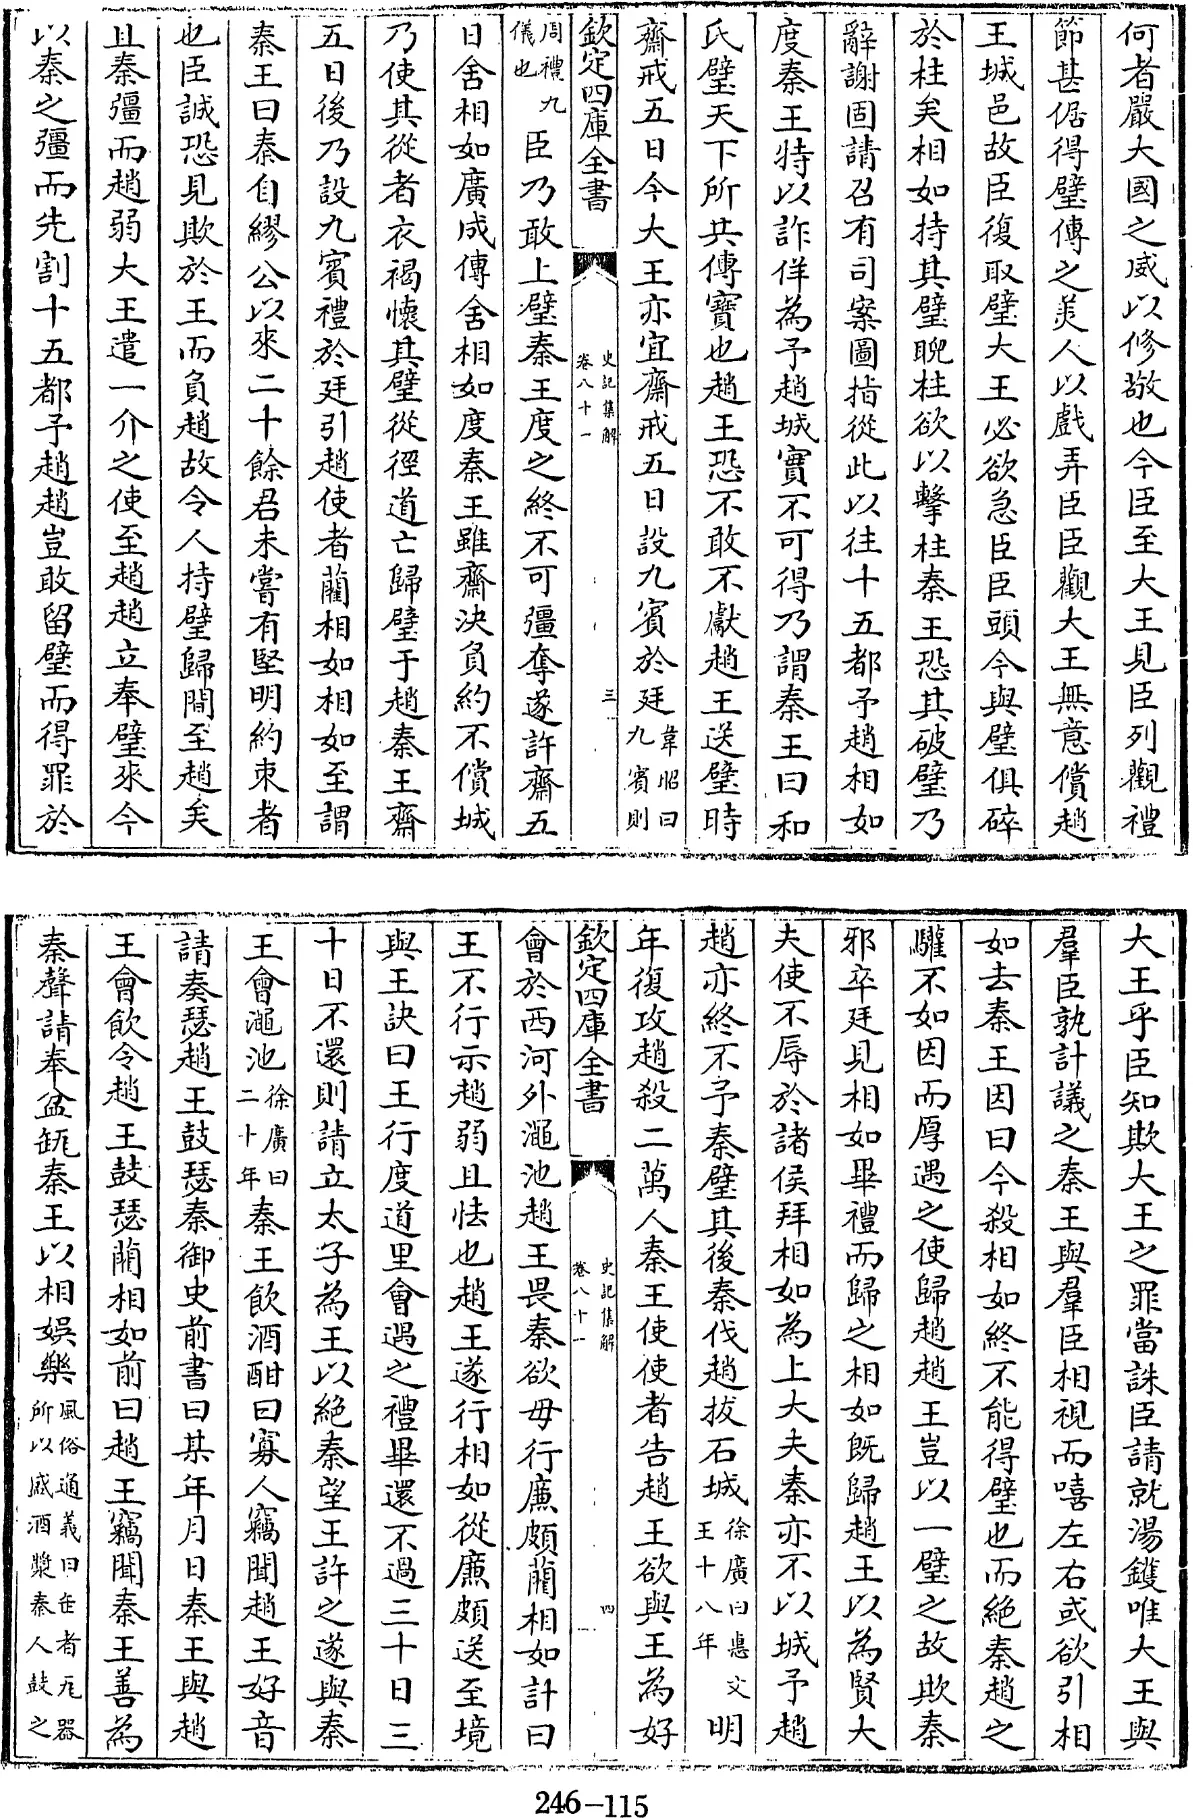 何者嚴大國之威以修敬也今臣至大王見臣列觀禮
節甚倨得璧傳之美人以戲弄臣臣觀大王無意償趙
王城邑故臣復取璧大王必欲急臣臣頭今與璧俱碎
於柱矣相如持其璧睨柱欲以擊柱秦王恐其破璧乃
辭謝固請召有司案圖指從此以往十五都予趙相如
度秦王特以詐佯為予趙城實不可得乃謂秦王曰和
氏璧天下所共傳寶也趙王恐不敢不獻趙王送璧時
齋戒五日今大王亦宜齋戒五日設九賓於廷韋昭曰九賓則
欽定四庫全書 史記集解 卷八十一 三
周禮九儀也臣乃敢上璧秦王度之終不可彊奪遂許齋五
日舍相如廣成傳舍相如度秦王雖齋決負約不償城
乃使其從者衣褐懷其璧從徑道亡歸璧于趙秦王齋
五日後乃設九賓禮於廷引趙使者藺相如相如至謂
秦王曰秦自繆公以來二十餘君未嘗有堅明約束者
也臣誠恐見欺於王而負趙故令人持璧歸間至趙矣
且秦彊而趙弱大王遣一介之使至趙趙立奉璧來今
以秦之彊而先割十五都予趙趙豈敢留璧而得罪於
大王乎臣知欺大王之罪當誅臣請就湯鑊唯大王與
羣臣孰計議之秦王與羣臣相視而嘻左右或欲引相
如去秦王因曰今殺相如終不能得璧也而絕秦趙之
驩不如因而厚遇之使歸趙趙王豈以一璧之故欺秦
邪卒廷見相如畢禮而歸之相如既歸趙王以為賢大
夫使不辱於諸侯拜相如為上大夫秦亦不以城予趙
趙亦終不予秦璧其後秦伐趙拔石城徐廣曰惠文王十八年明
年復攻趙殺二萬人秦王使使者告趙王欲與王為好
欽定四庫全書 史記集解 卷八十一 四
會於西河外澠池趙王畏秦欲毋行廉頗藺相如計曰
王不行示趙弱且怯也趙王遂行相如從廉頗送至境
與王訣曰王行度道里會遇之禮畢還不過三十日三
十日不還則請立太子為王以絕秦望王許之遂與秦
王會澠池徐廣曰二十年秦王飲酒酣曰寡人竊聞趙王好音
請奏瑟趙王鼓瑟秦御史前書曰某年月日秦王與趙
王會飲令趙王鼓瑟藺相如前曰趙王竊聞秦王善為
秦聲請奉盆缻秦王以相娛樂風俗通義曰缶者瓦器所以盛酒漿秦人鼓之
246–115